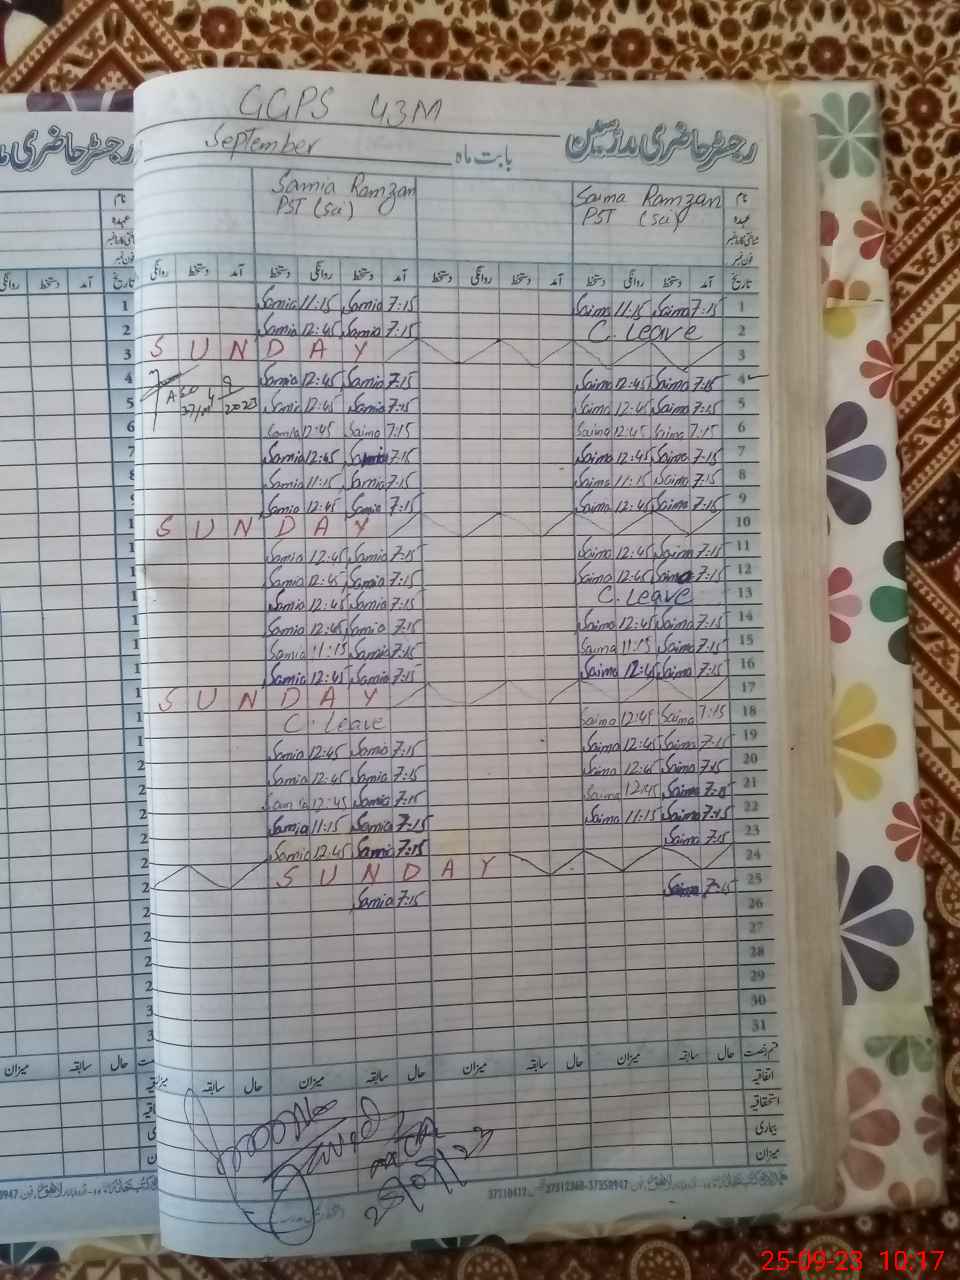 GGPS 43M
رجسٹر حاضری مدرسین
September بابت ماہ
Samia Ramzan Saima Ramzan نام
PST (SG) PST (SG) عہدہ
روانگی دستخط آمد دستخط روانگی دستخط آمد دستخط روانگی دستخط آمد دستخط روانگی دستخط آمد تاریخ
Samia 11:15 Samia 7:15 Saima 11:15 Saima 7:15 1
Samia 12:45 Samia 7:15 C. Leave 2
SUNDAY 3
Samia 12:45 Samia 7:15 Saima 12:45 Saima 7:15 4
Samia 12:45 Samia 7:15 Saima 12:45 Saima 7:15 5
Samia 12:45 Saima 7:15 Saima 12:45 Saima 7:15 6
Samia 12:45 Samia 7:15 Saima 12:45 Saima 7:15 7
Samia 11:15 Samia 7:15 Saima 11:15 Saima 7:15 8
Samia 12:45 Samia 7:15 Saima 12:45 Saima 7:15 9
SUNDAY 10
Samia 12:45 Samia 7:15 Saima 12:45 Saima 7:15 11
Samia 12:45 Samia 7:15 Saima 12:45 Saima 7:15 12
Samia 12:45 Samia 7:15 C. Leave 13
Samia 12:45 Samia 7:15 Saima 12:45 Saima 7:15 14
Samia 11:15 Samia 7:15 Saima 11:15 Saima 7:15 15
Samia 12:45 Samia 7:15 Saima 12:45 Saima 7:15 16
SUNDAY 17
C. Leave Saima 12:45 Saima 7:15 18
Samia 12:45 Samia 7:15 Saima 12:45 Saima 7:15 19
Samia 12:45 Samia 7:15 Saima 12:45 Saima 7:15 20
Samia 12:45 Samia 7:15 Saima 12:45 Saima 7:15 21
Samia 11:15 Samia 7:15 Saima 11:15 Saima 7:15 22
Samia 12:45 Samia 7:15 Saima 7:15 23
SUNDAY 24
Samia 7:15 Saima 7:15 25
26
27
28
29
30
31
میزان سابقہ حال میزان سابقہ حال میزان سابقہ حال قسم رخصت
اتفاقیہ
استحقاقیہ
بیماری
میزان
37310417 37312368-37358947
25-09-23 10:17